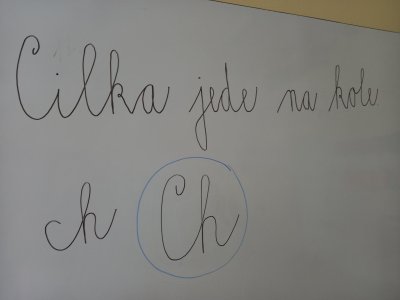 Cilka jede na kole.
ch Ch